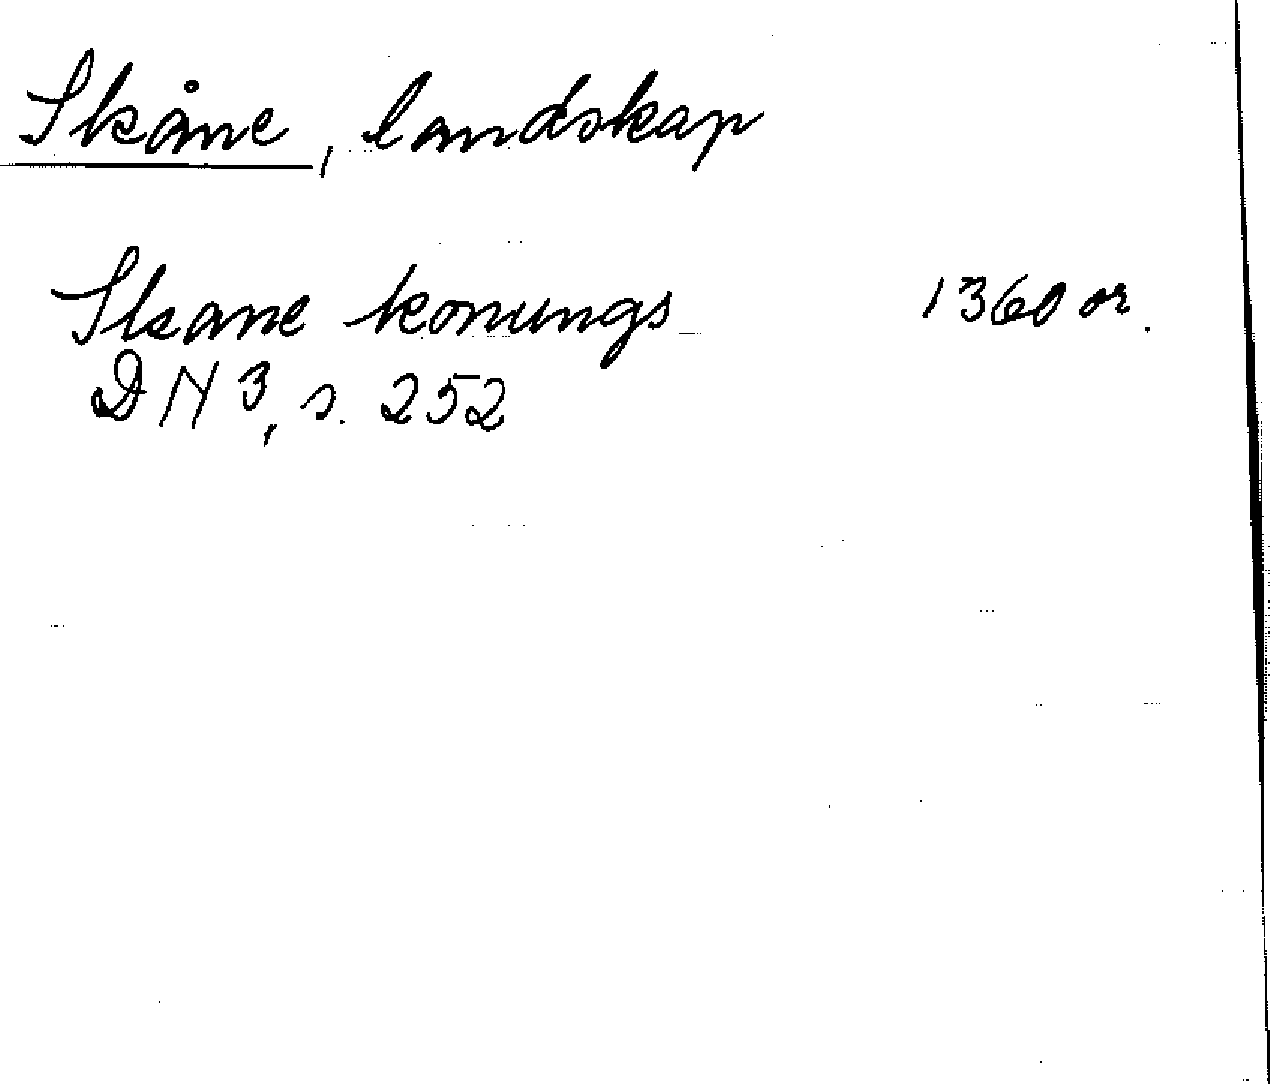 Skåne, landskap
Skane konungs 1360 or.
DN 3, s. 252